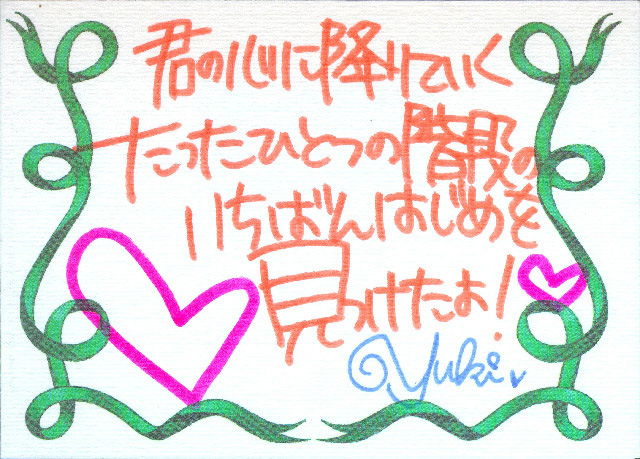 君の心に降りていく
たったひとつの階段の
いちばんはじめを
見つけたよ!
Yuki